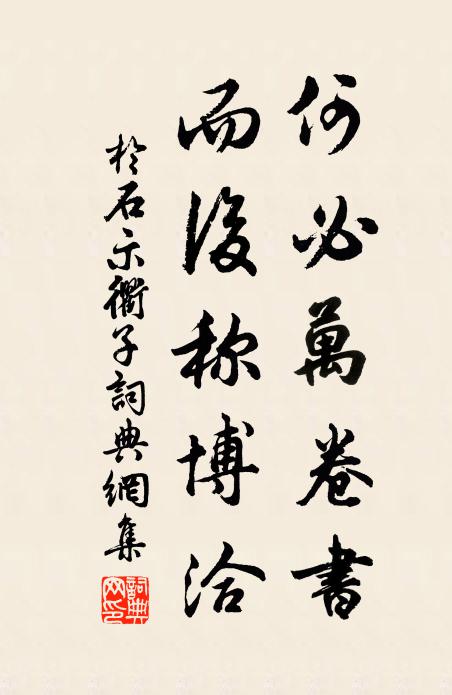 何必萬卷書
而後称博洽
於石示衢子詞典網集
詞典網印